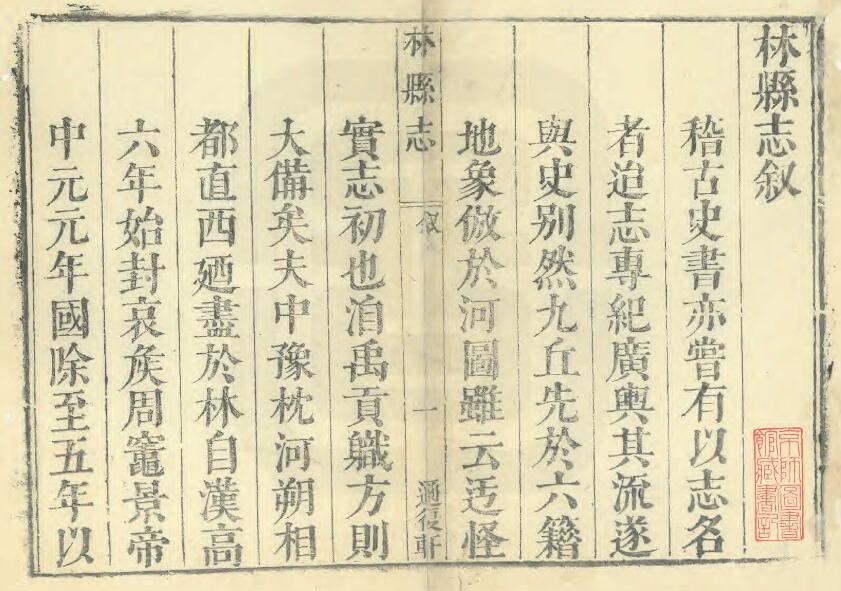 林縣志叙
稽古史書亦嘗有以志名
者迨志專紀廣輿其流遂
與史別然九丘先於六籍
地象倣於河圖雖云迂怪
林縣志
叙
一
適復軒
實志初也洎禹貢職方則
大備矣夫中豫枕河朔相
都直西廼盡於林自漢高
六年始封哀矦周竈景帝
中元元年國除至五年以
京師圖書
館藏書記